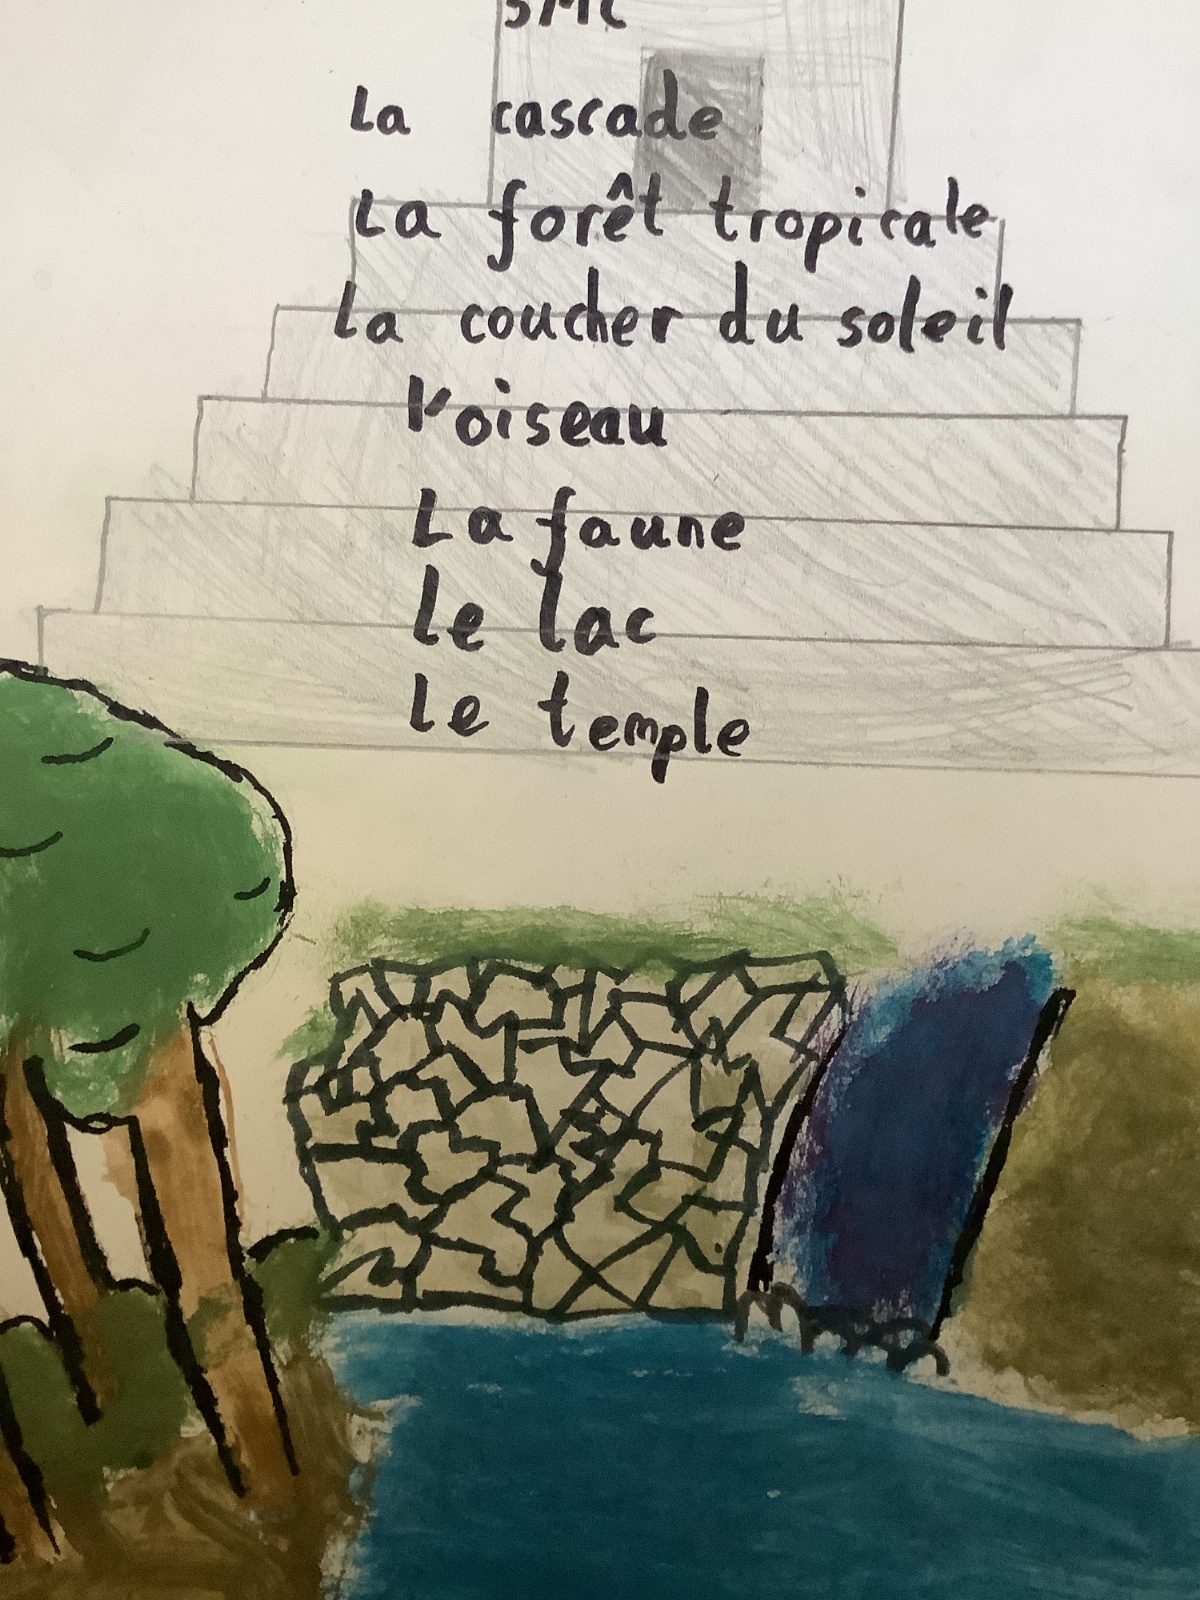 SMC
La cascade
La forêt tropicale
La coucher du soleil
l'oiseau
La faune
le lac
le temple